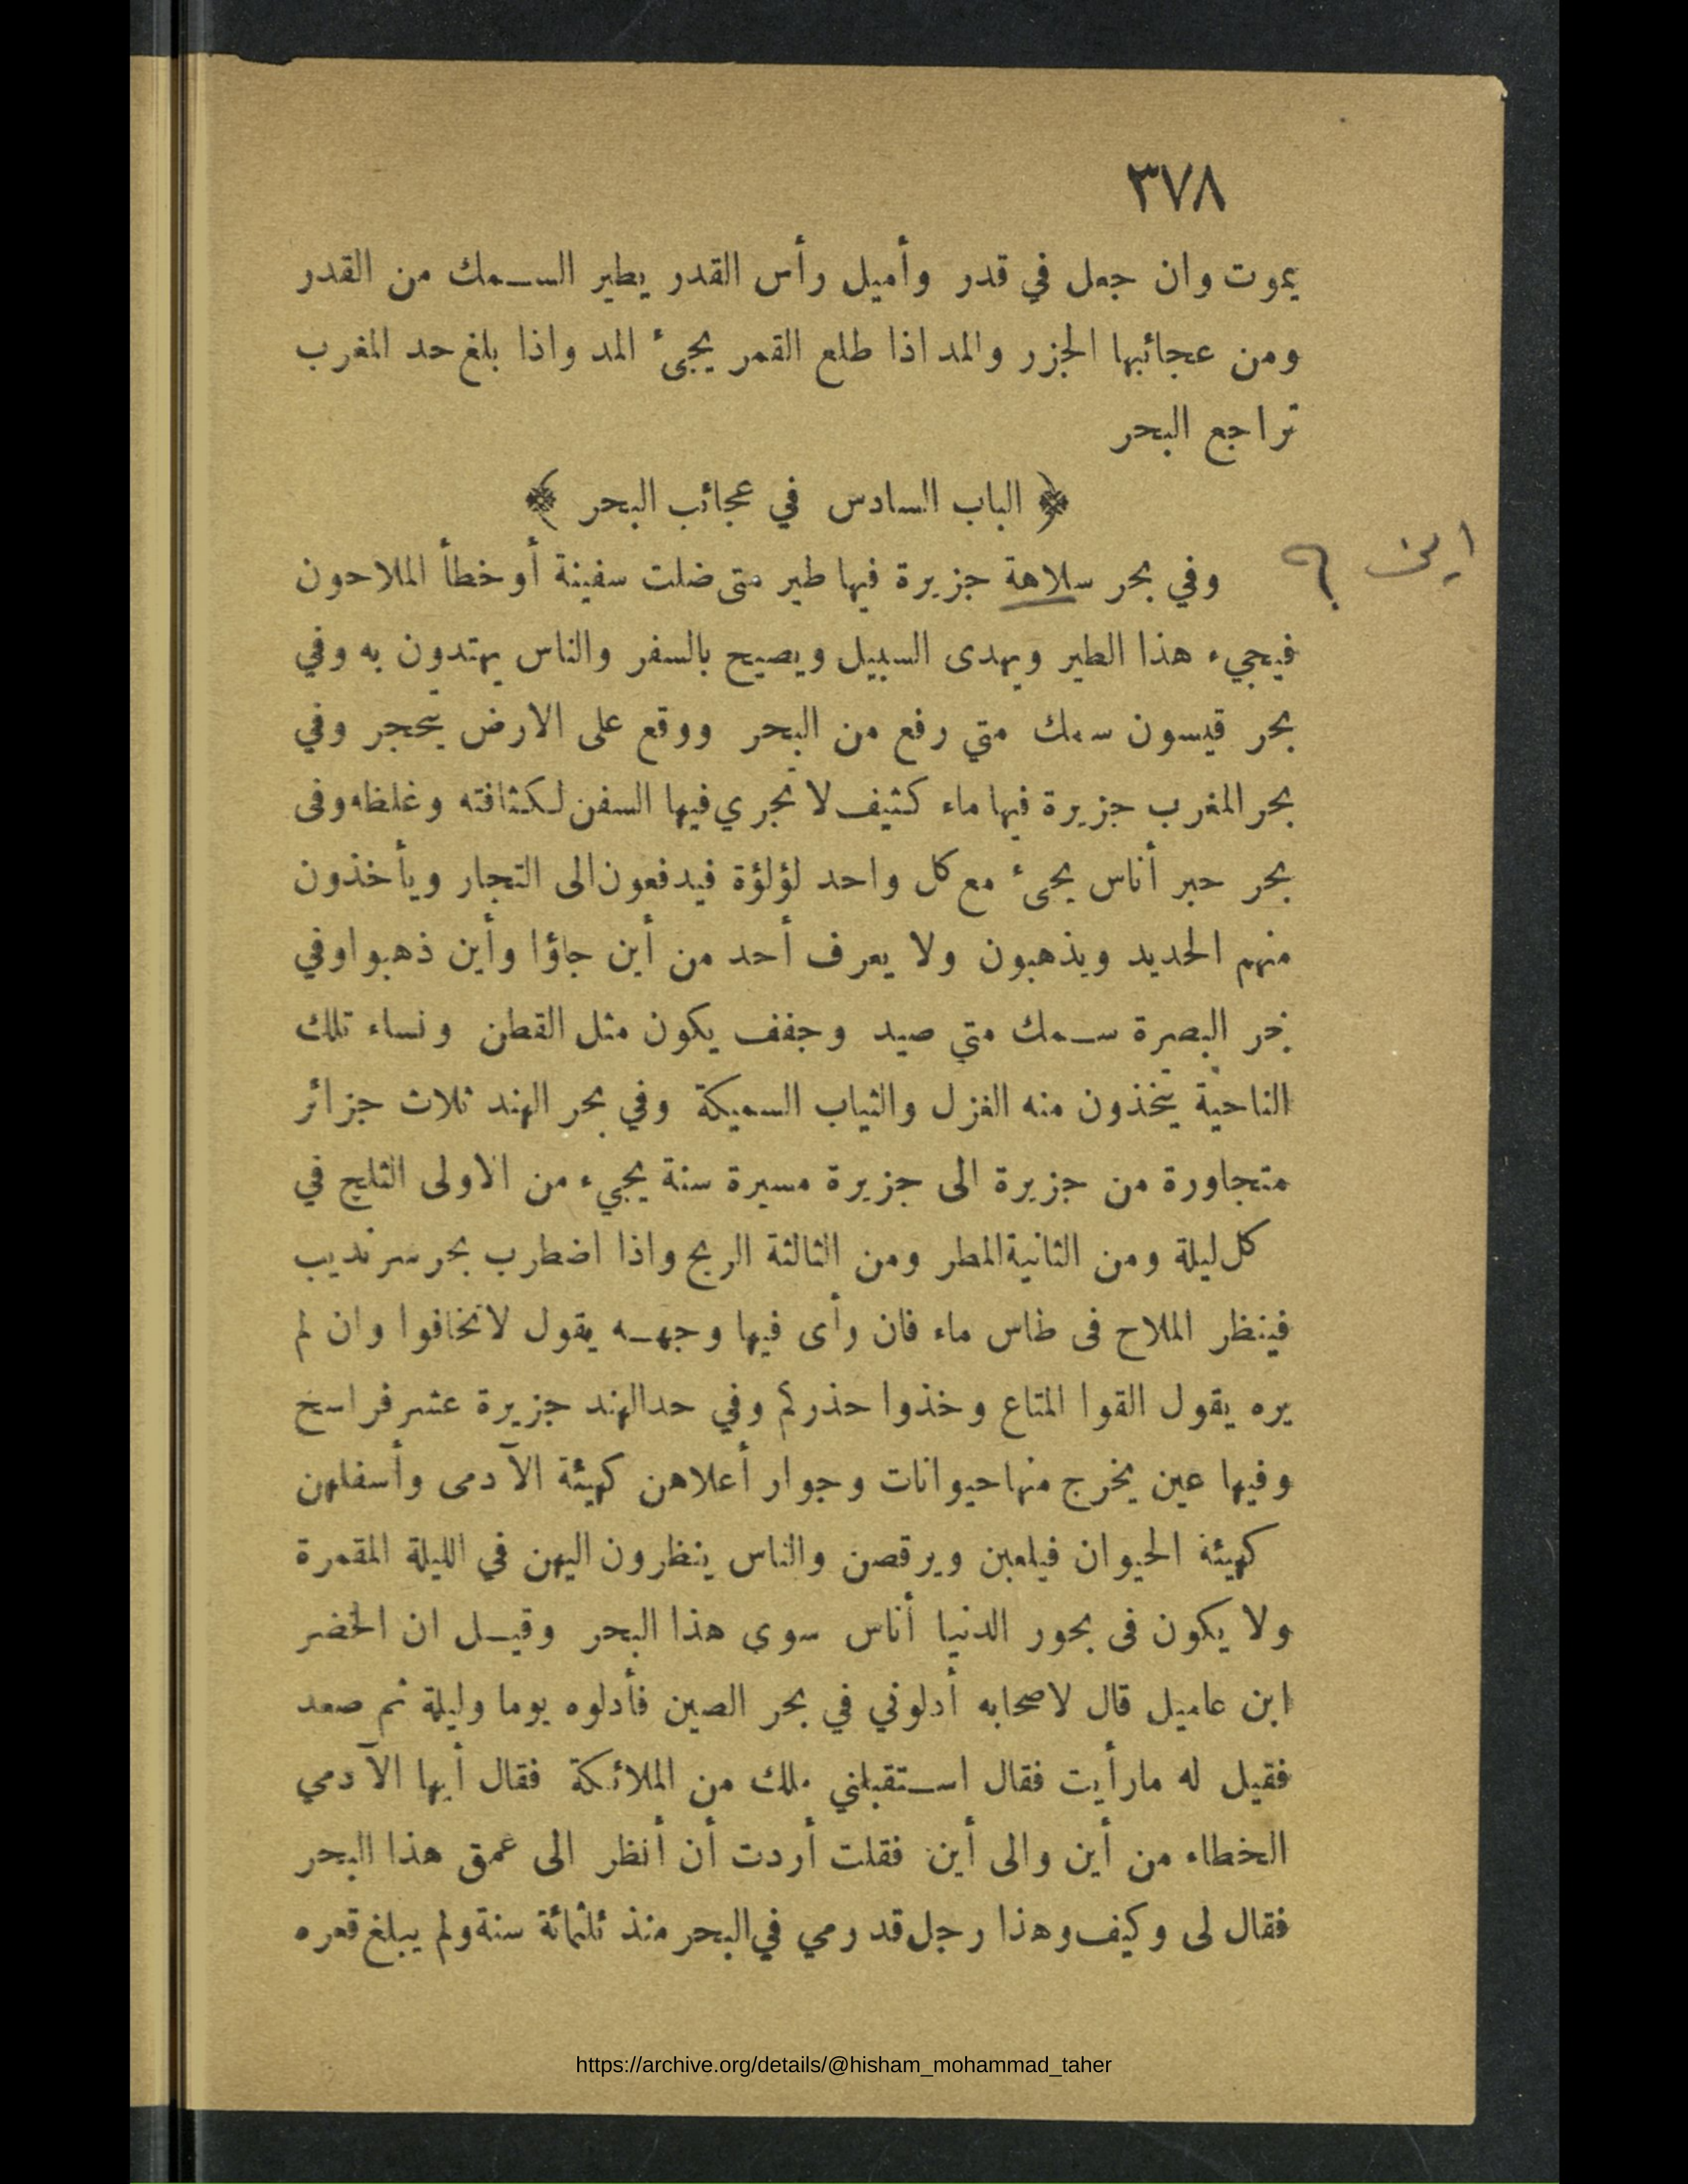 ٣٧٨
يموت وان جعل في قدر وأميل رأس القدر يطير السـمك من القدر
ومن عجائبها الجزر والمد اذا طلع القمر يجىء المد واذا بلغ حد المغرب
تراجع البحر
﴿ الباب السادس في عجائب البحر ﴾
اين ؟
وفي بحر سلاهة جزيرة فيها طير متى ضلت سفينة أو خطأ الملاحون
فيجيء هذا الطير ويهدى السبيل ويصيح بالسفر والناس يهتدون به وفي
بحر قيسون سمك متي رفع من البحر ووقع على الارض يتحجر وفي
بحر المغرب جزيرة فيها ماء كثيف لا تجري فيها السفن لكثافته وغلظه وفى
بحر حبر أناس يجىء مع كل واحد لؤلؤة فيدفعون الى التجار ويأخذون
منهم الحديد ويذهبون ولا يعرف أحد من أين جاؤا وأين ذهبوا وفي
بحر البصرة سـمك متي صيد وجفف يكون مثل القطن ونساء تلك
الناحية يتخذون منه الغزل والثياب السميكة وفي بحر الهند ثلاث جزائر
متجاورة من جزيرة الى جزيرة مسيرة سنة يجيء من الاولى الثلج في
كل ليلة ومن الثانية المطر ومن الثالثة الريح واذا اضطرب بحر سرنديب
فينظر الملاح فى طاس ماء فان رأى فيها وجهـه يقول لا تخافوا وان لم
يره يقول القوا المتاع وخذوا حذركم وفي حد الهند جزيرة عشر فراسخ
وفيها عين يخرج منها حيوانات وجوار أعلاهن كهيئة الآدمى وأسفلهن
كهيئة الحيوان فيلعبن ويرقصن والناس ينظرون اليهن في الليلة المقمرة
ولا يكون فى بحور الدنيا أناس سوى هذا البحر وقيـل ان الخضر
ابن عاميل قال لاصحابه أدلوني في بحر الصين فأدلوه يوما وليلة ثم صعد
فقيل له ما رأيت فقال اسـتقبلني ملك من الملائكة فقال أيها الآدمي
الخطاء من أين والى أين فقلت أردت أن أنظر الى عمق هذا البحر
فقال لى وكيف وهذا رجل قد رمي في البحر منذ ثلثمائة سنة ولم يبلغ قعره
https://archive.org/details/@hisham_mohammad_taher